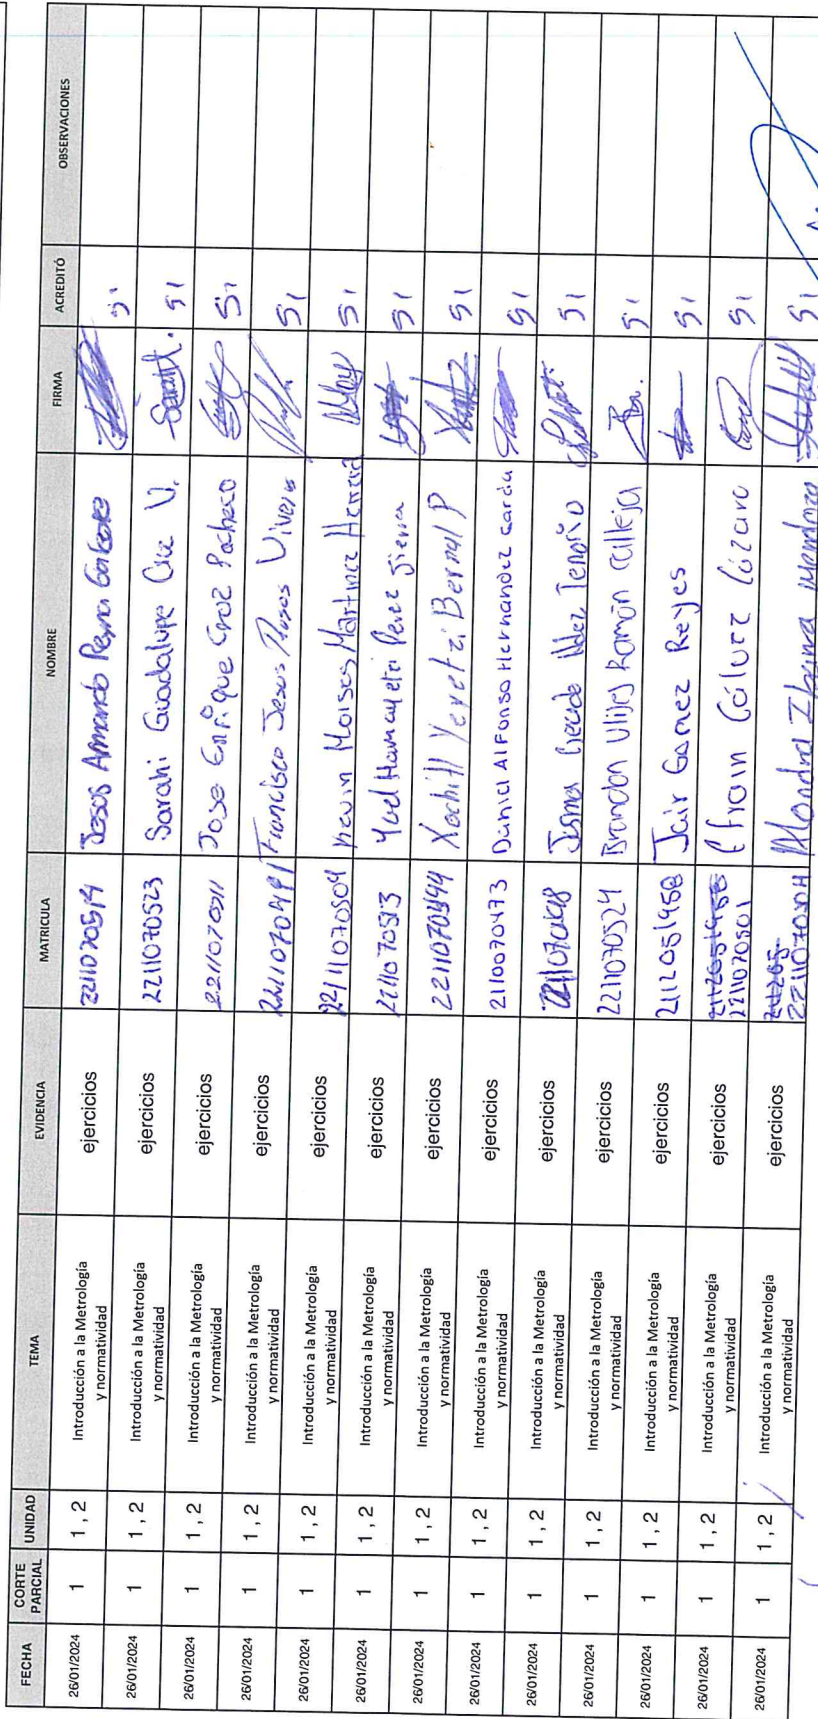 FECHA CORTE PARCIAL UNIDAD TEMA EVIDENCIA MATRICULA NOMBRE FIRMA ACREDITÓ OBSERVACIONES
26/01/2024 1 1 , 2 Introducción a la Metrología y normatividad ejercicios 2211070514 Jesus Armando Reyna si
26/01/2024 1 1 , 2 Introducción a la Metrología y normatividad ejercicios 2211070523 Sarahi Guadalupe Cruz V. Sarahi. si
26/01/2024 1 1 , 2 Introducción a la Metrología y normatividad ejercicios Jose Enrique Cruz Pacheco si
26/01/2024 1 1 , 2 Introducción a la Metrología y normatividad ejercicios 2211070491 Francisco Jesus Viveros si
26/01/2024 1 1 , 2 Introducción a la Metrología y normatividad ejercicios Kevin Moises Martinez Herrera si
26/01/2024 1 1 , 2 Introducción a la Metrología y normatividad ejercicios 2211070513 Yael Perez Sierra si
26/01/2024 1 1 , 2 Introducción a la Metrología y normatividad ejercicios Xochitl Yeretzi Bernal P si
26/01/2024 1 1 , 2 Introducción a la Metrología y normatividad ejercicios 2110070473 Daniel Alfonso Hernandez Garcia si
26/01/2024 1 1 , 2 Introducción a la Metrología y normatividad ejercicios Tenorio si
26/01/2024 1 1 , 2 Introducción a la Metrología y normatividad ejercicios 2211070524 Brandon Ulises Ramón Calleja si
26/01/2024 1 1 , 2 Introducción a la Metrología y normatividad ejercicios 2112051958 Jair Gamez Reyes si
26/01/2024 1 1 , 2 Introducción a la Metrología y normatividad ejercicios 2211070501 Efrain si
26/01/2024 1 1 , 2 Introducción a la Metrología y normatividad ejercicios Alondra Mendoza si